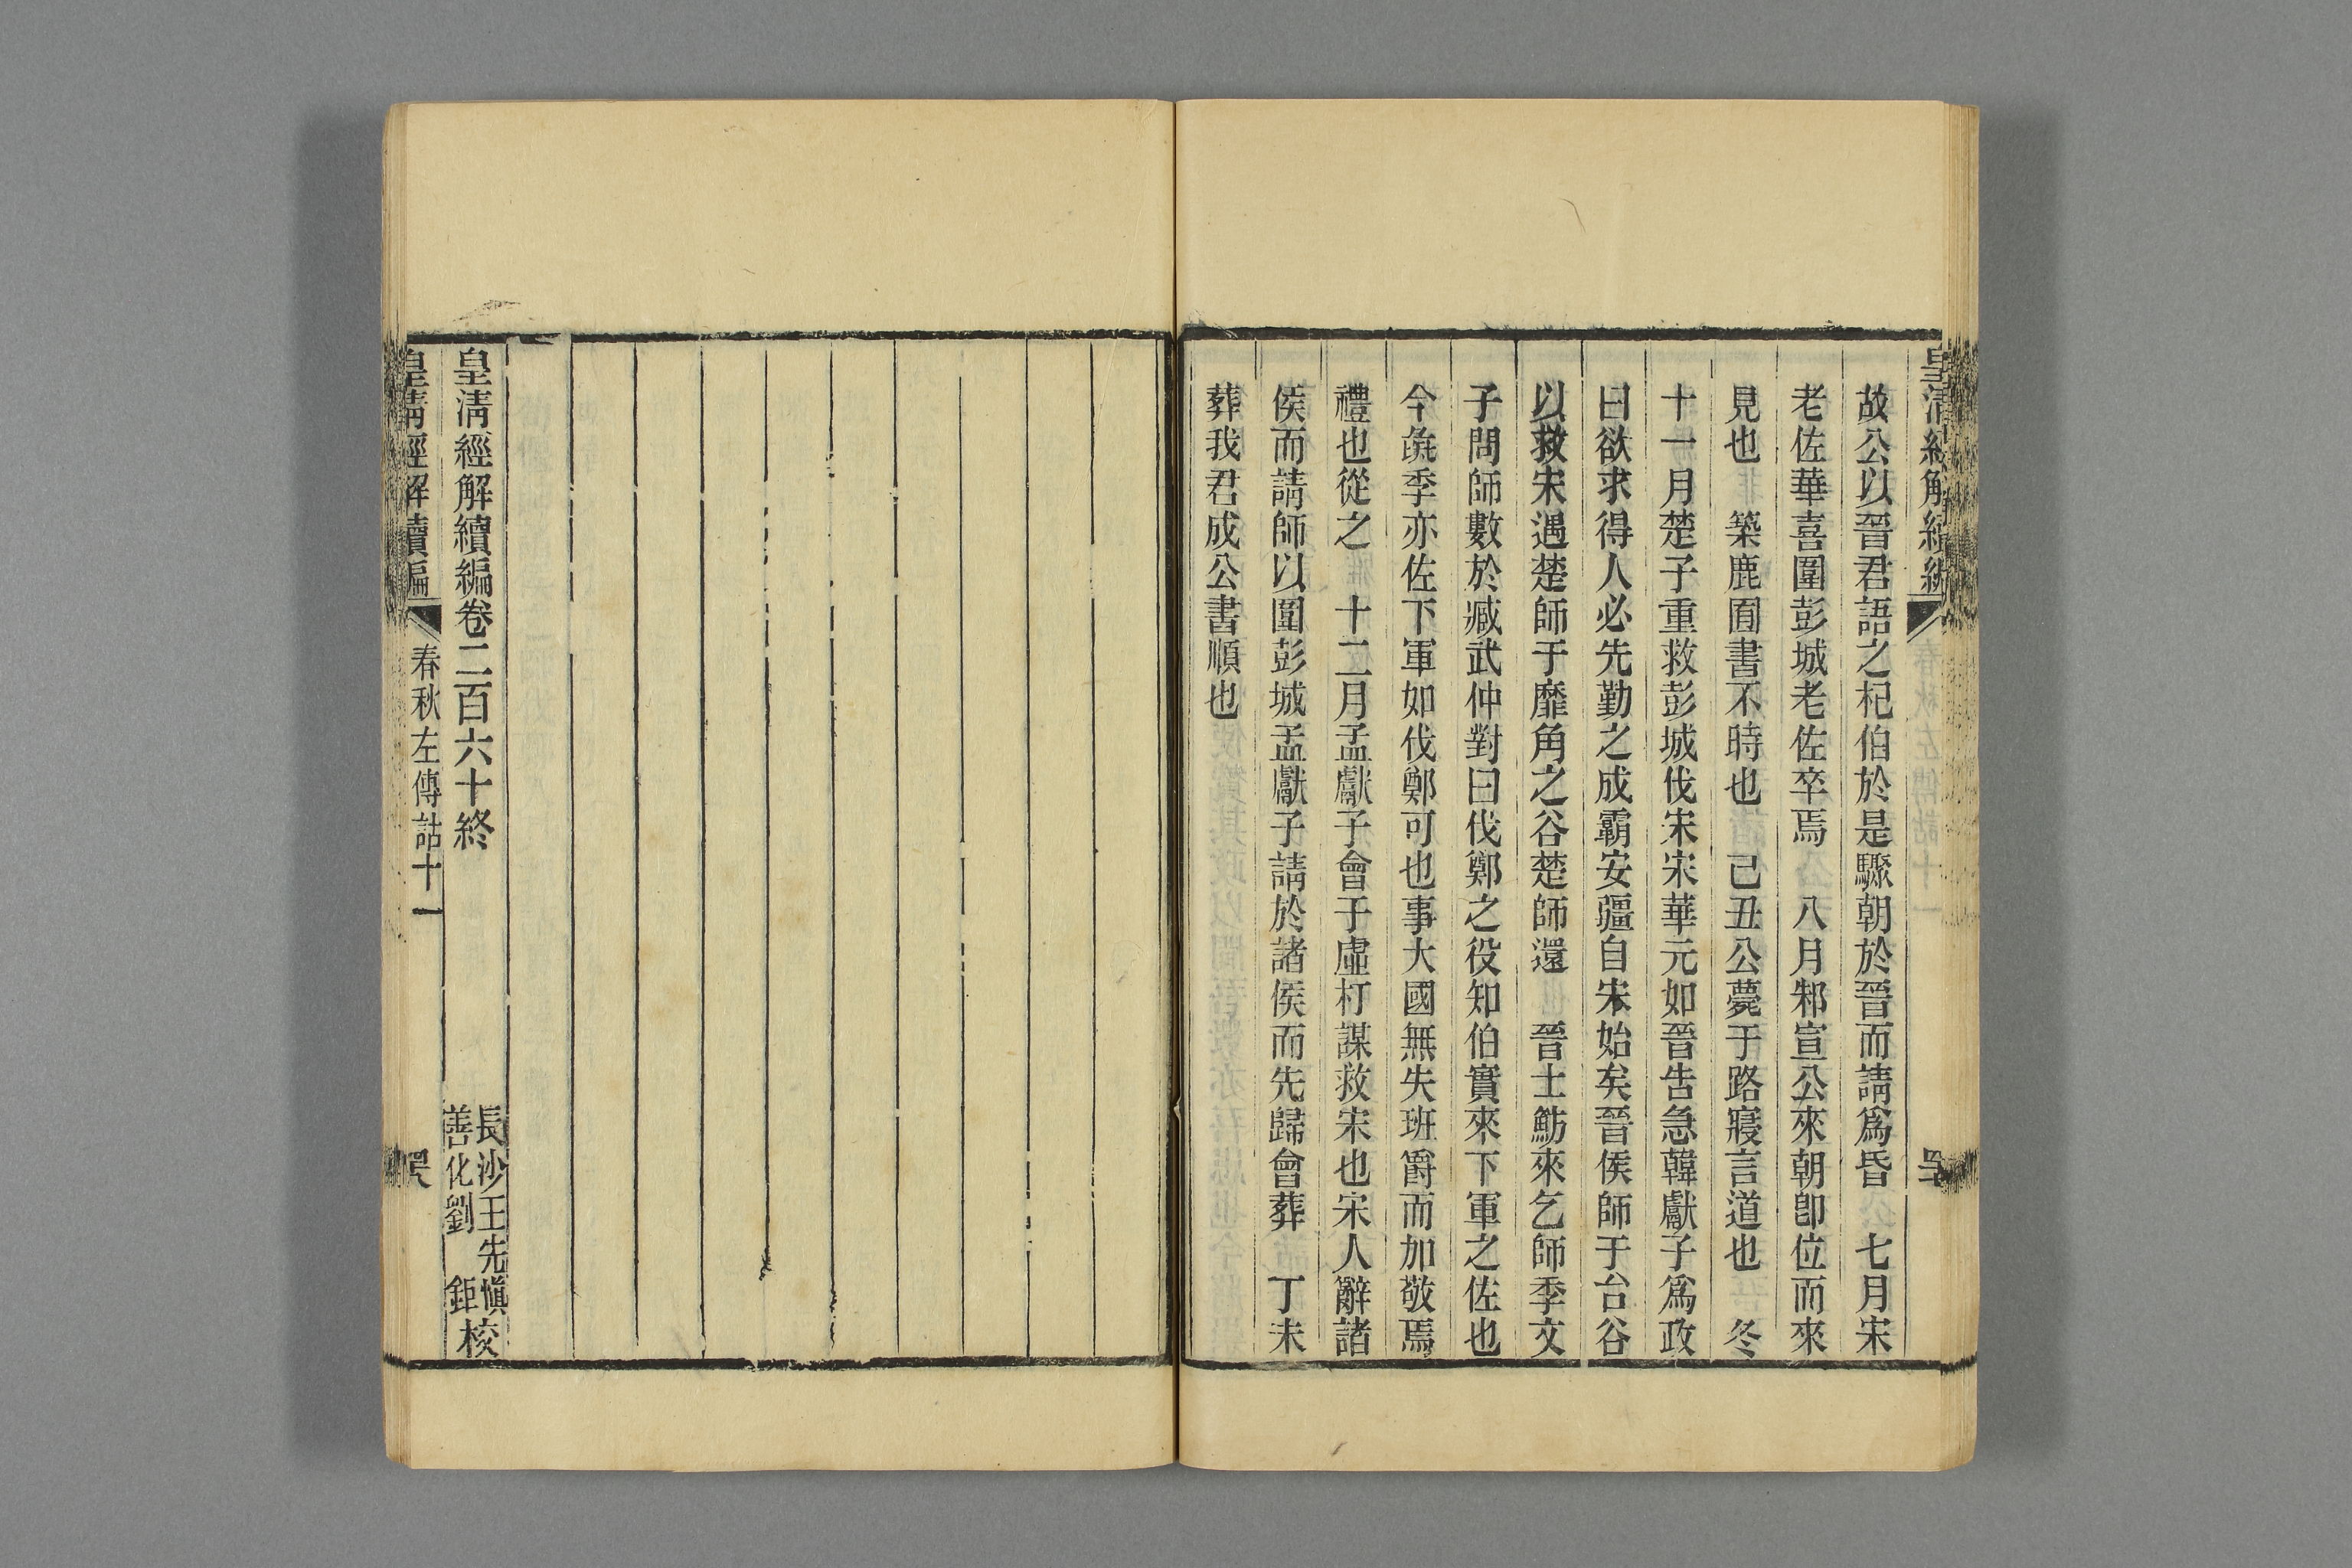 皇清經解續編
故公以晉君語之杞伯於是驟朝於晉而請爲昏　七月宋
老佐華喜圍彭城老佐卒焉　八月邾宣公來朝卽位而來
見也　築鹿囿書不時也　己丑公薨于路寢言道也　冬
十一月楚子重救彭城伐宋宋華元如晉告急韓獻子爲政
曰欲求得人必先勤之成霸安疆自宋始矣晉侯師于台谷
以救宋遇楚師于靡角之谷楚師還　晉士魴來乞師季文
子問師數於臧武仲對曰伐鄭之役知伯實來下軍之佐也
今彘季亦佐下軍如伐鄭可也事大國無失班爵而加敬焉
禮也從之　十二月孟獻子會于虛朾謀救宋也宋人辭諸
侯而請師以圍彭城孟獻子請於諸侯而先歸會葬　丁未
葬我君成公書順也
皇清經解續編卷二百六十終
長沙王先慎
善化劉　鉅
校
皇清經解續編
春秋左傳詁十一